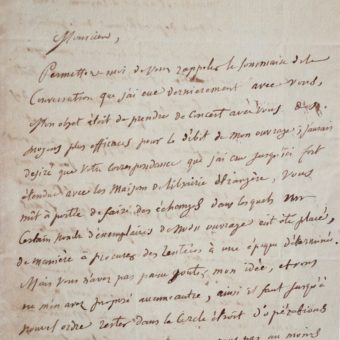 Monsieur,
Permettez moi de vous rappeler le sommaire de la
Conversation que j'ai eue dernierement avec vous,
Mon objet étoit de prendre de Concert avec vous des
moyens plus efficaces pour le débit de mon ouvrage; j'aurais
desiré que votre correspondance que j'ai cru jusqu'ici fort
étendue avec les Maisons de librairie étrangère, vous
mit à portée de faire des échanges dans lesquels un
Certain nombre d'exemplaires de mon ouvrage eut été placé,
de manière à procurer des rentrées à une époque déterminée.
Mais vous n'avez pas paru goûter mon idée, et vous
ne m'en avez proposé aucune autre; ainsi il faut jusqu'à
nouvel ordre rester dans le Cercle étroit d'opérations
pas au moins